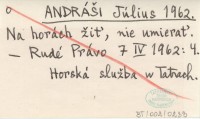 o ANDRÁŠI Július 1962.
Na horách žiť, nie umierať.
– Rudé Právo 7 IV 1962: 4.
Horská služba v Tatrách.